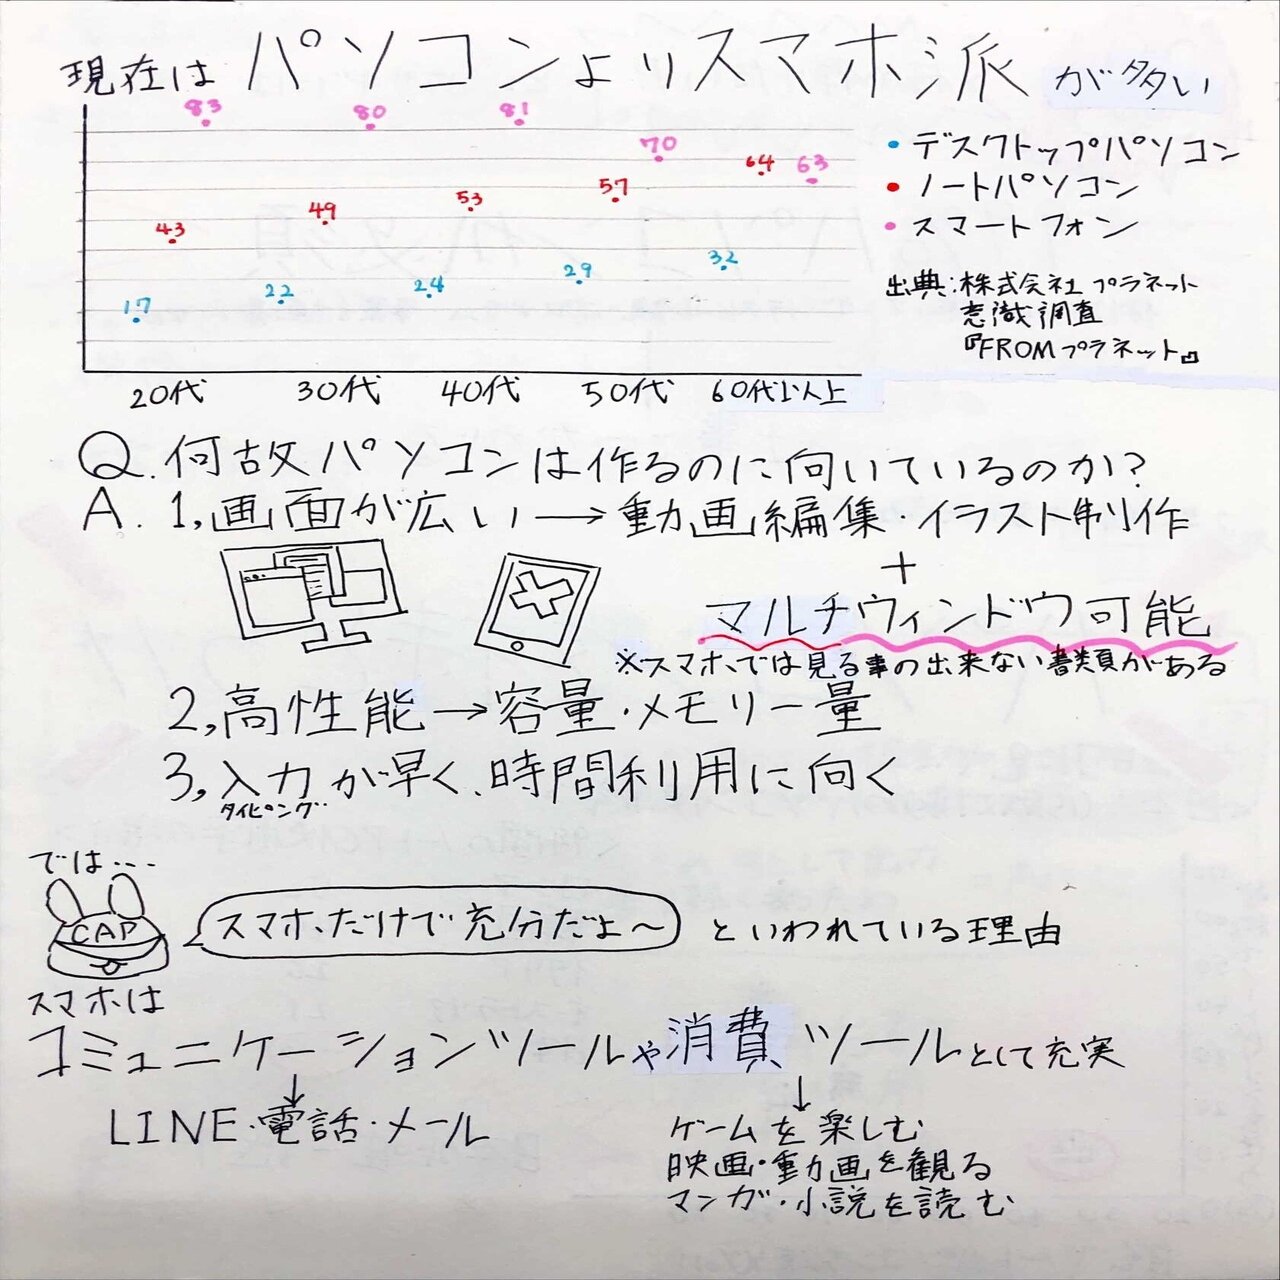 現在はパソコンよりスマホ派が多い
83 80 81 70 64 63
43 49 53 57
17 22 24 29 32
20代 30代 40代 50代 60代以上
・デスクトップパソコン
・ノートパソコン
・スマートフォン
出典:株式会社プラネット
意識調査
『FROMプラネット』
Q.何故パソコンは作るのに向いているのか?
A.1,画面が広い→動画編集・イラスト制作
+
マルチウィンドウ可能
※スマホでは見る事の出来ない書類がある
2,高性能→容量・メモリー量
3,入力が早く、時間利用に向く
タイピング
では…
CAP
スマホだけで充分だよ〜
といわれている理由
スマホは
コミュニケーションツールや消費ツールとして充実
↓ ↓
LINE・電話・メール
ゲームを楽しむ
映画・動画を観る
マンガ・小説を読む